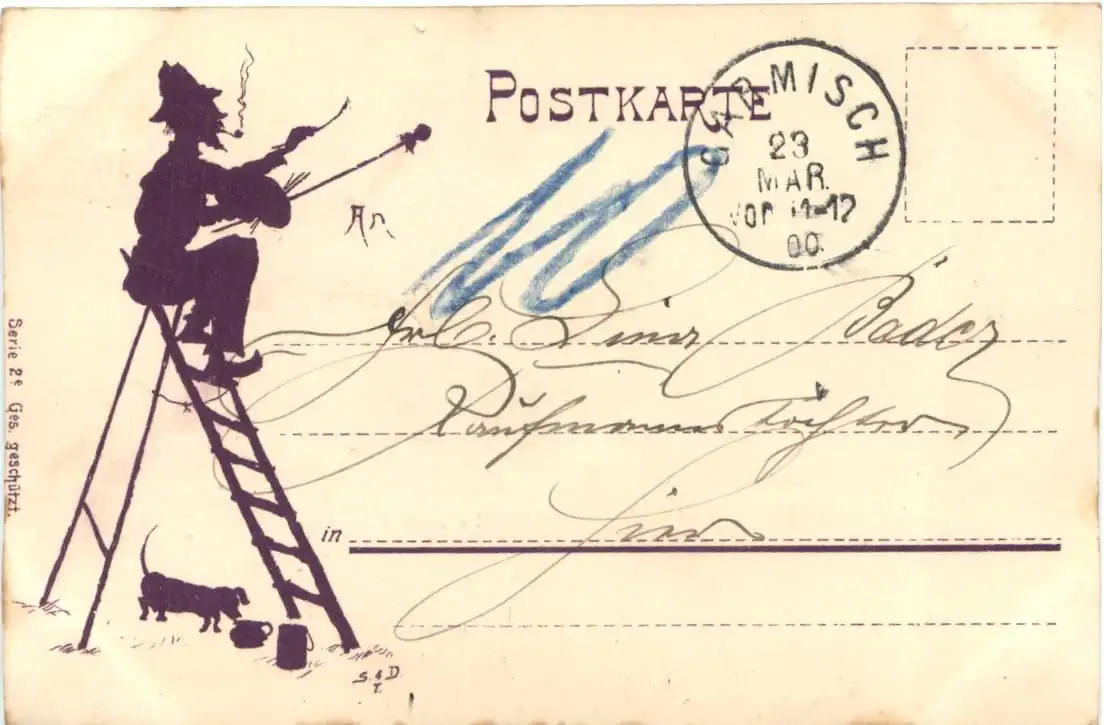 POSTKARTE
GARMISCH
23
MAR.
VOR 11-12
00.
An
Frl. Bader
Kaufmanns Töchter
in
Hier
Serie 2e Ges. geschützt.
S. & D.
T.